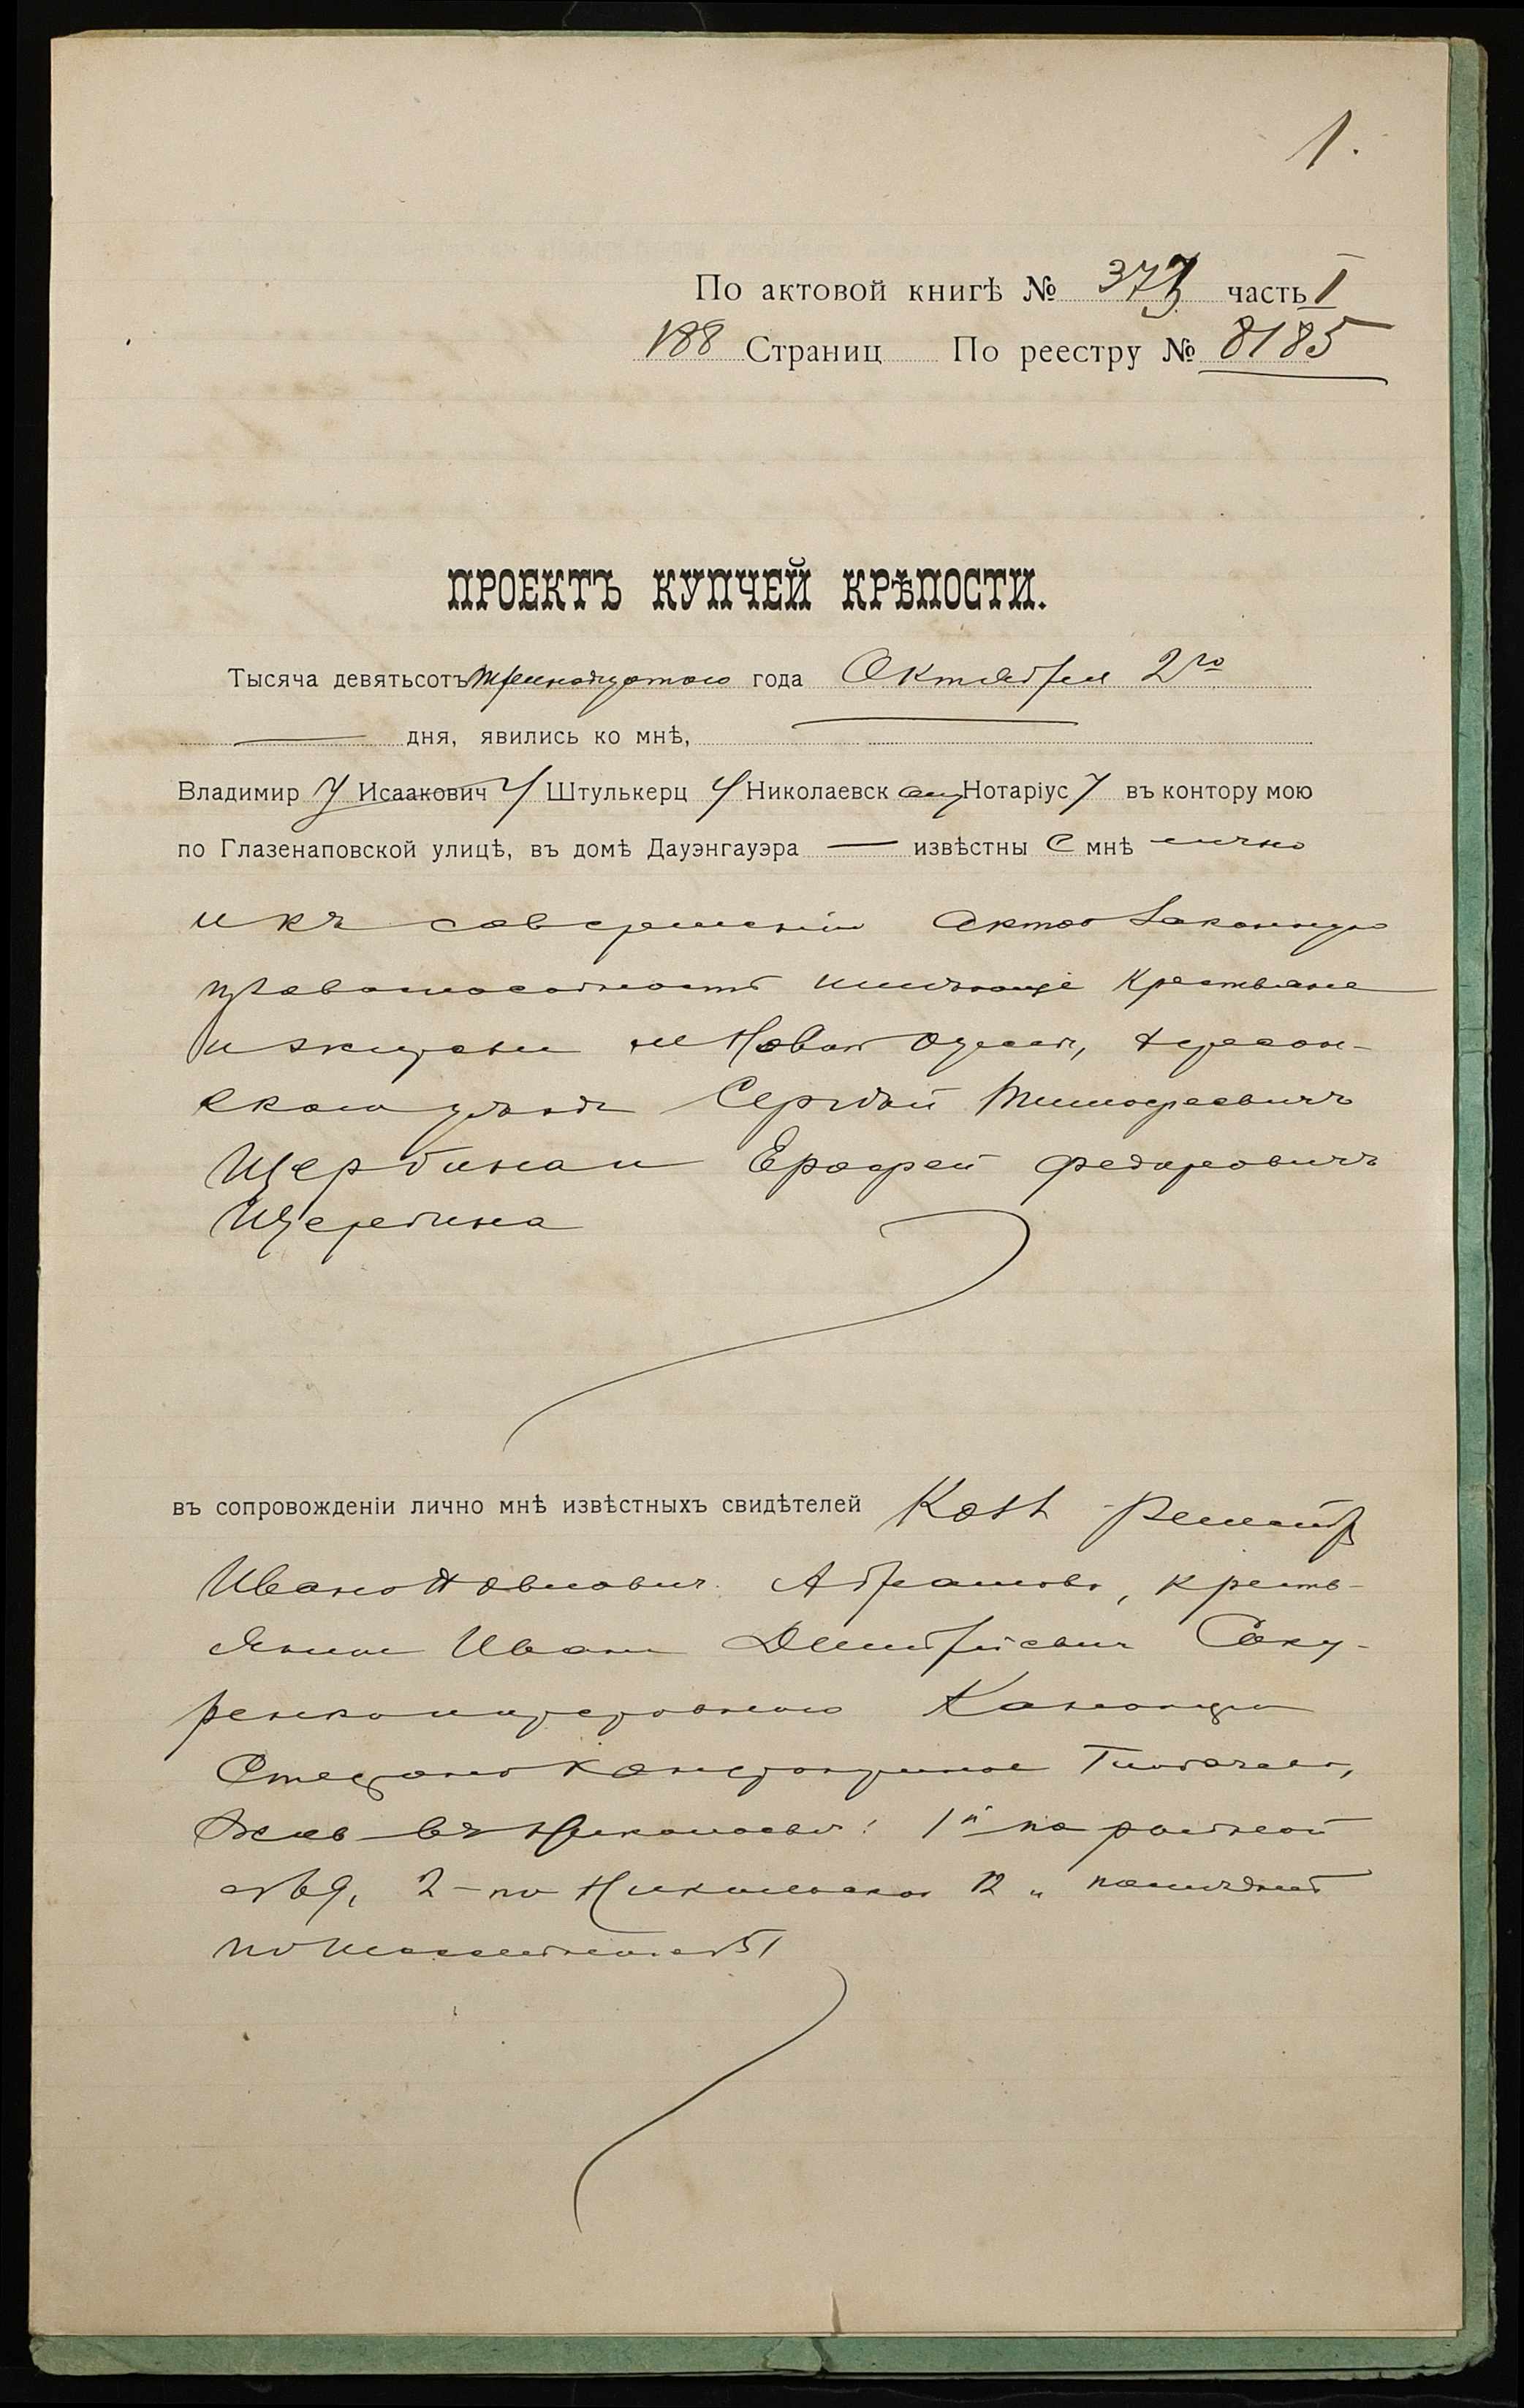 1.
По актовой книгѣ № 373 часть I
188 Страниц По реестру № 8185
ПРОЕКТЪ КУПЧЕЙ КРѢПОСТИ.
Тысяча девятьсотъ тринадцатого года Октября 2го
дня, явились ко мнѣ,
Владимир Исаакович Штулькерц Николаевск Нотаріус въ контору мою
по Глазенаповской улицѣ, въ домѣ Дауэнгауэра — извѣстны е мнѣ лично
и къ совершенію актов законную
правоспособность имѣющіе Крестьяне
и жители м Новой Одессы, Херсон-
скаго уѣзда Сергѣй Тимофеевичъ
Щербина и Ерофей Федоровичъ
Щербина
въ сопровожденіи лично мнѣ извѣстныхъ свидѣтелей
Иван Павлович Абрамова, кресть-
янина Ивана Дмитріевича Соку-
ренко и
Степана
въ Николаевѣ: 1й по
69, 2-по Никольской 12 и послѣдній
по 51